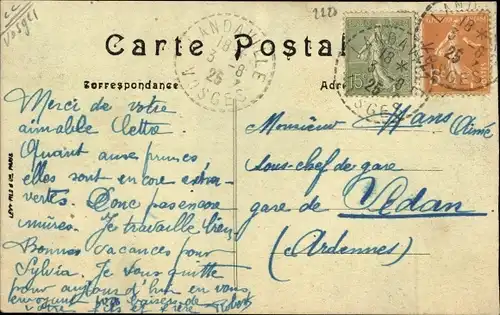 Vosges
2220
Carte Postale
LANDAVILLE
18 *
3 - 8
25
VOSGES
15c
5c
Correspondance
Merci de votre
aimable lettre
Quant aux prunes,
elles sont encore
vertes. Donc pas encore
mûres. Je travaille bien.
Bonnes vacances pour
Sylvia. Je vous quitte
pour aujourd'hui en vous
envoyant bons baisers de
votre fils et frère
Monsieur Hans Aimé
sous-chef de gare
gare de Sedan
(Ardennes)
LEVY FILS & CIE PARIS